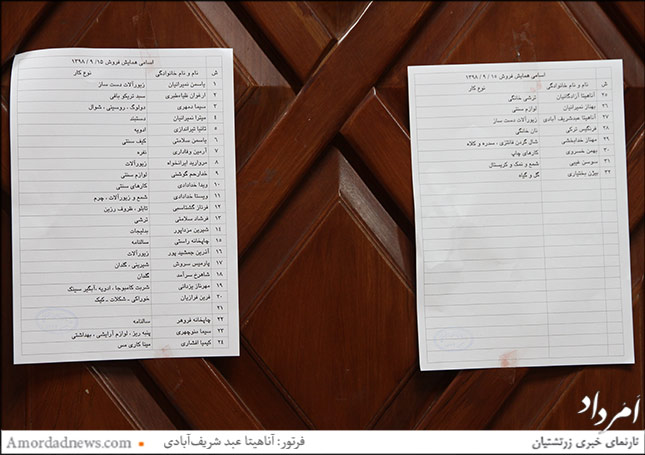 اسامی همایش فروش ۱۵/ ۹ / ۱۳۹۸
ش نام و نام خانوادگی نوع کار
۱ یاسمن نمیرانیان زیورآلات دست ساز
۲ ارغوان طباطبقری سبد تریکو بافی
۳ سیما دمهری دولوگ ، روسیتی ، شوال
۴ میترا نمیرانیان دستبند
۵ تانیا تیراندازی ادویه
۶ یاسمن سلامتی کیف سنتی
۷ آرمین وفاداری نقره
۸ مروارید ایرانخواه زیورآلات
۹ خدارحم گوشتی لوازم سنتی
۱۰ ویدا خدادادی کارهای سنتی
۱۱ ویستا خدادادی شمع و زیورآلات ، چرم
۱۲ فرناز گشتاسبی تابلو ، ظروف رزین
۱۳ فرشاد سلامتی ترشی
۱۴ شیرین مزداپور بدلیجات
۱۵ چاپخانه راستی سالنامه
۱۶ آذرین جمشید پور زیورآلات
۱۷ پارمیس سروش شیرینی ، گلدان
۱۸ شاهرخ سرآمد گلدان
۱۹ مهرناز یزدانی شربت کامبوجا ، ادویه ،آبگیر سینک
۲۰ فرین فرازیان خوراکی ـ شکلات ـ کیک
۲۱
۲۲ چاپخانه فروهر سالنامه
۲۳ سیما منوچهری پنبه ریز ، لوازم آرایشی ، بهداشتی
۲۴ کیمیا افشاری مینا کاری مس
اسامی همایش فروش ۱۵/ ۹ / ۱۳۹۸
ش نام و نام خانوادگی نوع کار
۲۵ آناهیتا آزادگانیان ترشی خانگی
۲۶ بهناز نمیرانیان لوازم سنتی
۲۷ آناهیتا عبدشریف آبادی زیورآلات دست ساز
۲۸ فرنگیس ترکی نان خانگی
۲۹ مهناز خدابخشی شال گردن فانتزی ، سدره و کلاه
۳۰ بهمن خسروی کارهای چاپ
۳۱ سوسن غیبی شمع و نمک و کریستال
۳۲ بیژن بختیاری گل و گیاه
اَمُرداد
تارنمای خبری زرتشتیان
فرتور: آناهیتا عبد شریف‌آبادی
Amordadnews.com